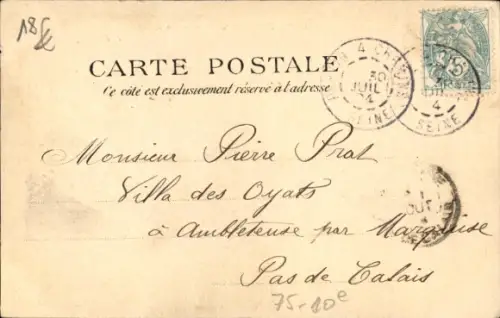 CARTE POSTALE
Ce côté est exclusivement réservé à l'adresse
4 CHARENTON
30
JUIL
04
SEINE
4
SEINE
5c
Monsieur Pierre Prat
Villa des Oyats
à Ambleteuse par Marquise
Pas de Calais
75-10e
AOUT